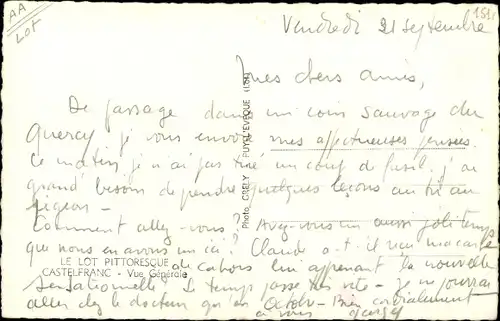 AA
LOT
1515
Vendredi 21 septembre
mes chers amis,
De passage dans un coin sauvage du
Quercy je vous envoie mes affectueuses pensées.
Ce matin, je n'ai pas tiré un coup de fusil. J'ai
grand besoin de prendre quelques leçons au tir au
pigeon -
Comment allez-vous? Avez-vous un aussi joli temps
que nous en avons un ici? Claude a-t-il reçu ma carte
de Cahors lui apprenant la nouvelle
sensationnelle. Le temps passe très vite - Je ne pourrai
aller chez le docteur qu'en Octobre - Bien cordialement
à vous
LE LOT PITTORESQUE
CASTELFRANC - Vue Générale
Photo CRELY PUY-L'EVEQUE (LOT)